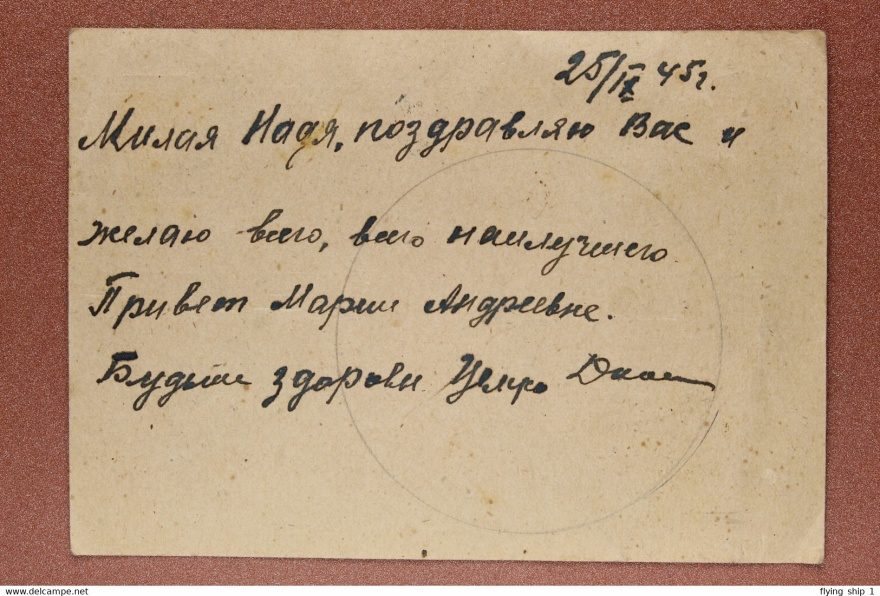 25/IX 45г.
Милая Надя, поздравляю Вас и
желаю всего, всего наилучшего
Привет Марии Андреевне.
Будьте здоровы
https://www.delcampe.net
flying ship 1